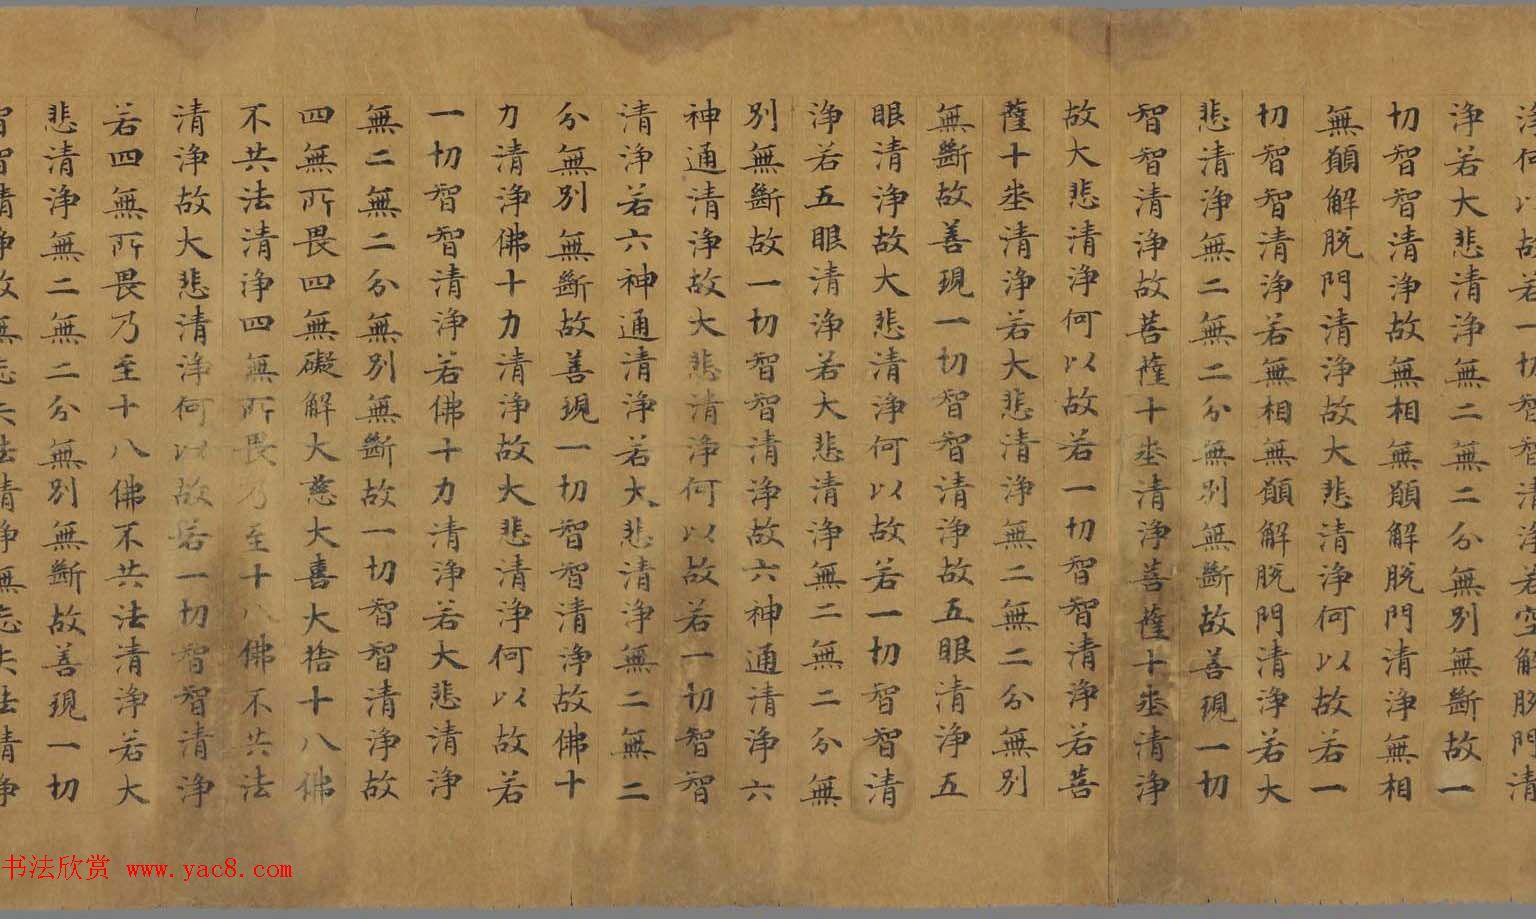 淨何以故若一切智智清淨若空解脫門清
淨若大悲清淨無二無二分無別無斷故一
切智智清淨故無相無願解脫門清淨無相
無願解脫門清淨故大悲清淨何以故若一
切智智清淨若無相無願解脫門清淨若大
悲清淨無二無二分無別無斷故善現一切
智智清淨故菩薩十埊清淨菩薩十埊清淨
故大悲清淨何以故若一切智智清淨若菩
薩十埊清淨若大悲清淨無二無二分無別
無斷故善現一切智智清淨故五眼清淨五
眼清淨故大悲清淨何以故若一切智智清
淨若五眼清淨若大悲清淨無二無二分無
別無斷故一切智智清淨故六神通清淨六
神通清淨故大悲清淨何以故若一切智智
清淨若六神通清淨若大悲清淨無二無二
分無別無斷故善現一切智智清淨故佛十
力清淨佛十力清淨故大悲清淨何以故若
一切智智清淨若佛十力清淨若大悲清淨
無二無二分無別無斷故一切智智清淨故
四無所畏四無礙解大慈大喜大捨十八佛
不共法清淨四無所畏乃至十八佛不共法
清淨故大悲清淨何以故若一切智智清淨
若四無所畏乃至十八佛不共法清淨若大
悲清淨無二無二分無別無斷故善現一切
智智清淨故無忘失法清淨無忘失法清淨
书法欣赏 www.yac8.com